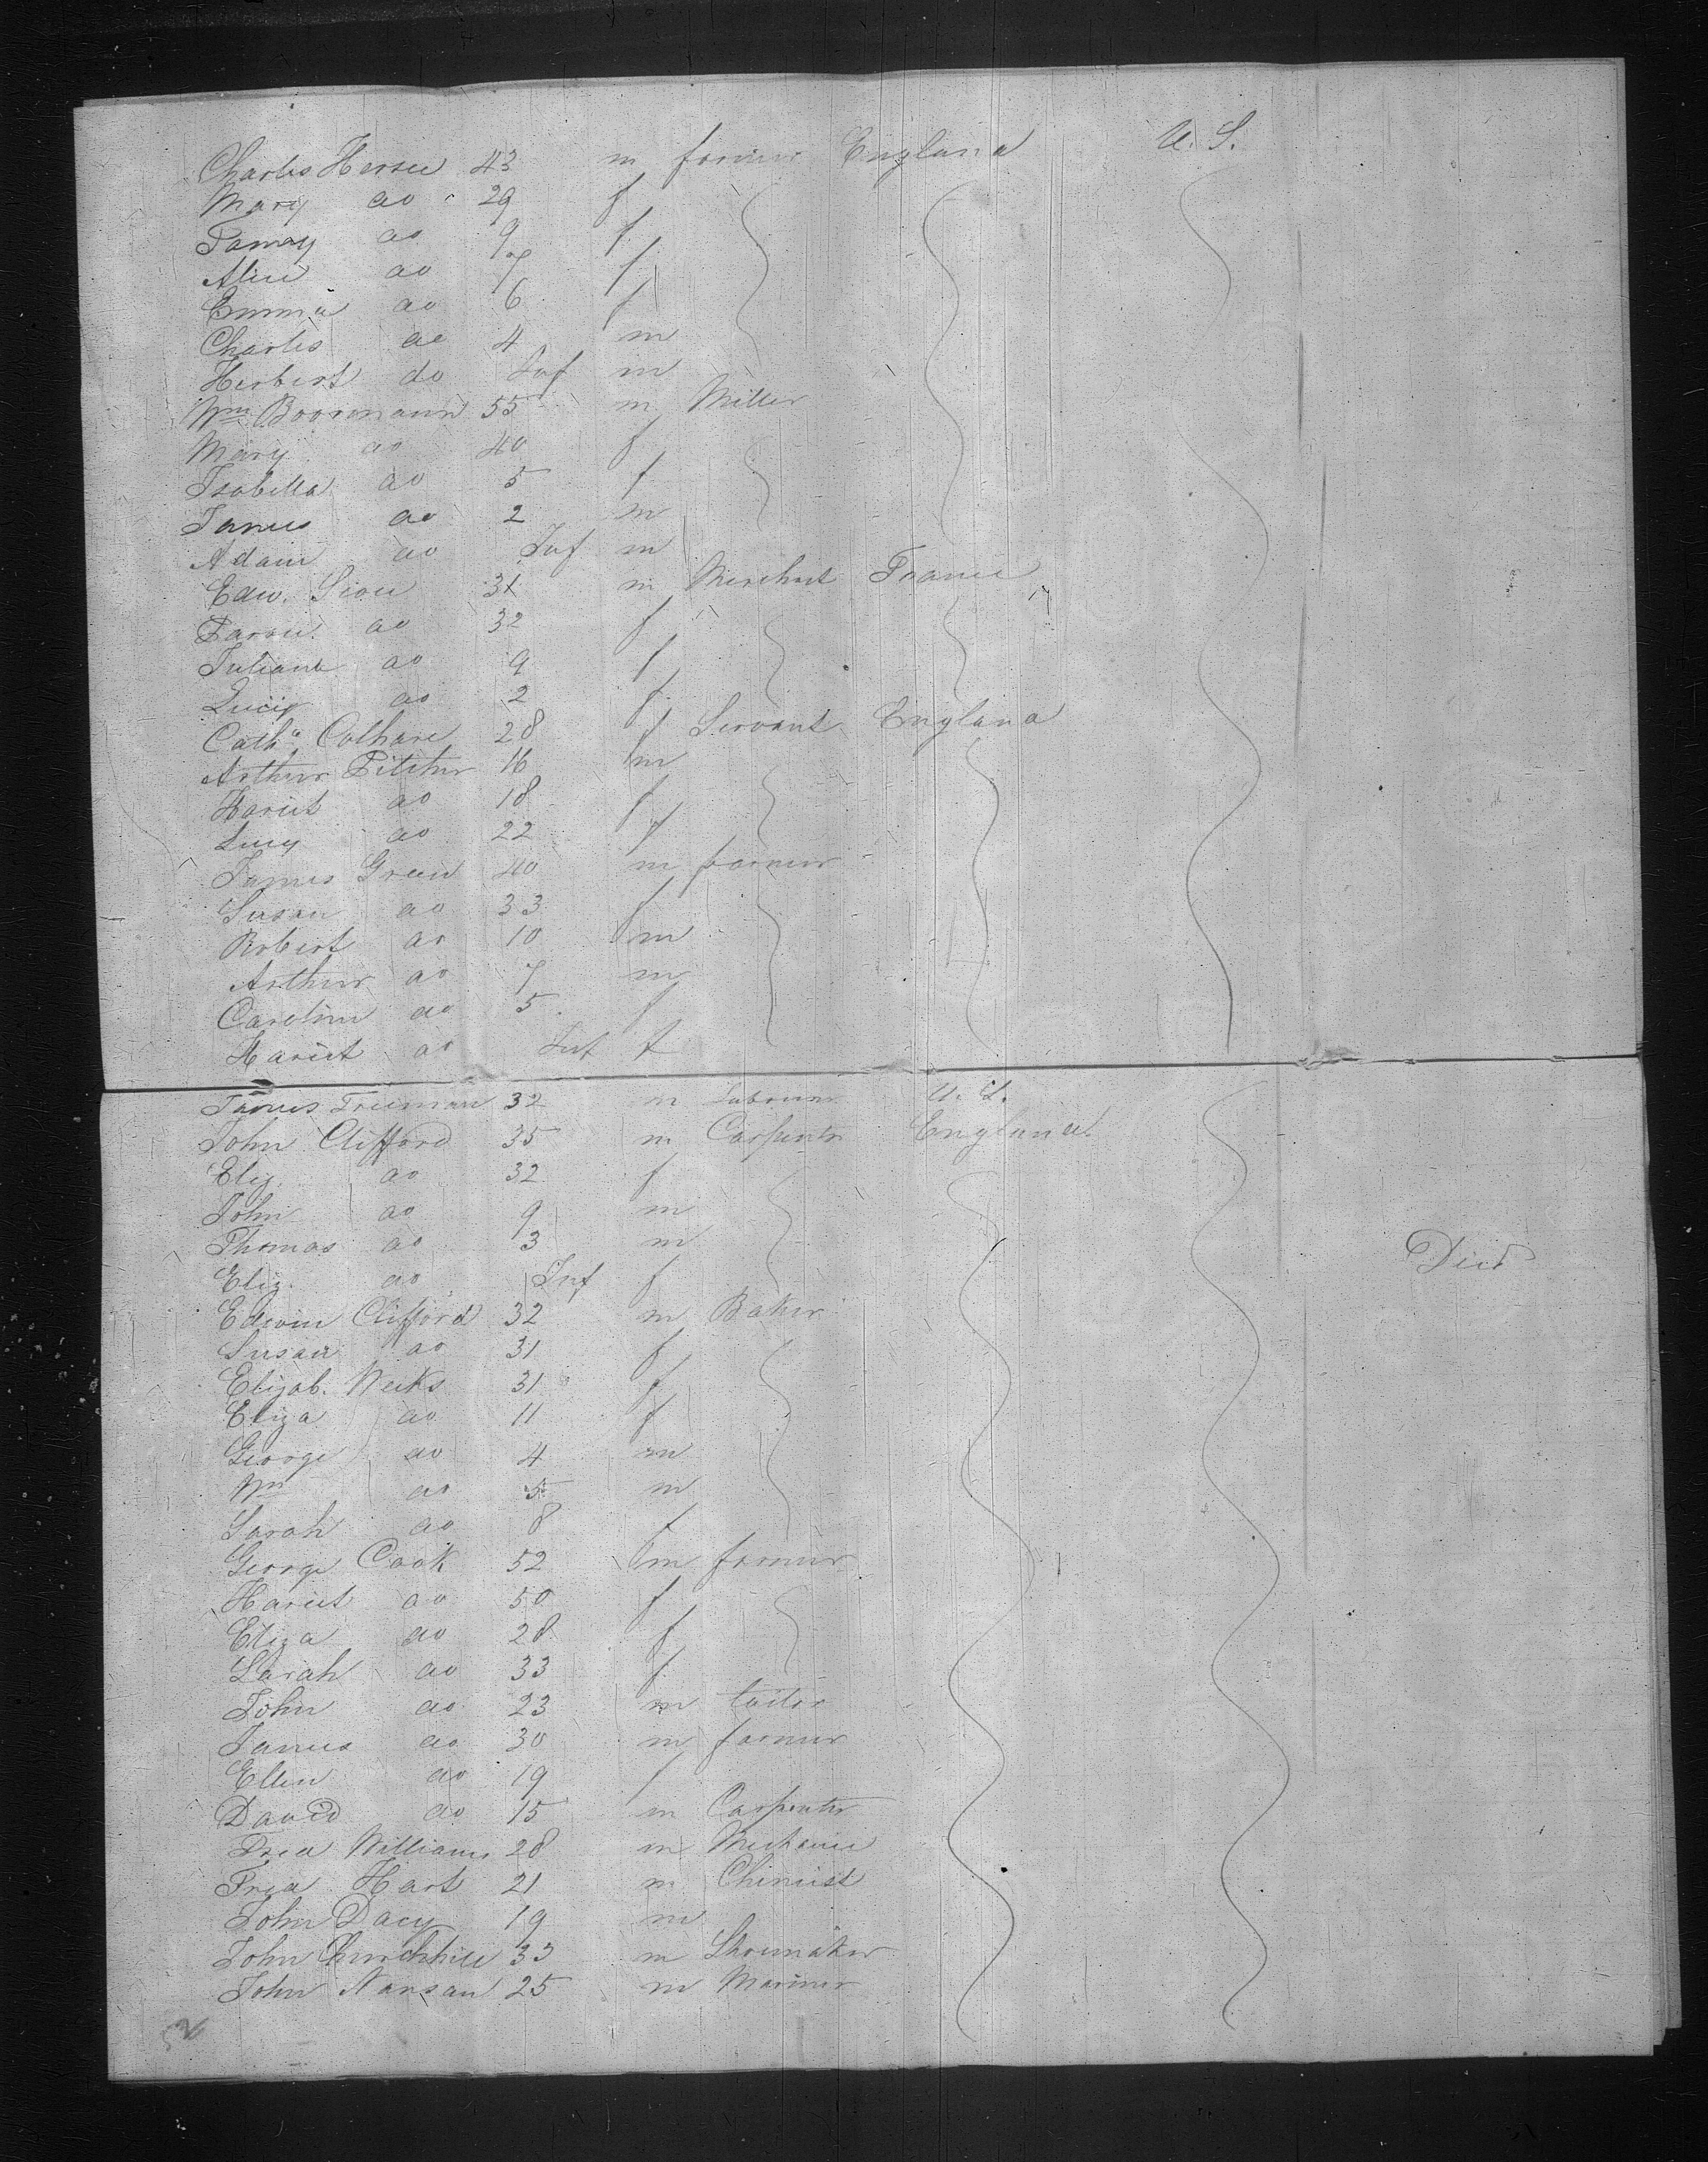 Charles Hersee 43 m farmer England U. S.
Mary do 29 f
Fanny do 9 f
Alice do 7 f
Emma do 6 f
Charles do 4 m
Herbert do Inf m
Wm Boormann 55 m Miller
Mary do 40 f
Isabella do 5 f
James do 2 m
Adam do Inf m
Edw. 31 m Merchant France
do 32 f
Juliana do 9 f
Lucy do 2 f
Cath. 28 f Servant England
Arthur Pilcher 16 m
Hariet do 18 f
Lucy do 22 f
James Green 40 m farmer
Susan do 33 f
Robert do 10 m
Arthur do 7 m
Caroline do 5 f
Hariet do Inf f
James Freeman 32 m Labourer U. S.
John Clifford 35 m Carpenter England
Eliz. do 32 f
John do 9 m
Thomas do 3 m
Eliz. do Inf f Died
Edwin Clifford 32 m Baker
Susan do 31 f
Elizab. Weeks 31 f
Eliza do 11 f
George do 4 m
Wm do 5 m
Sarah do 8 f
George Cook 52 m farmer
Hariet do 50 f
Eliza do 28 f
Sarah do 33 f
John do 23 m tailor
James do 30 m farmer
Ellen do 19 f
David do 15 m Carpenter
Fred Williams 28 m Mechanic
Fred Hart 21 m Chemist
John Dacy 19 m
John Churchhill 33 m Shoemaker
John Nansan 25 m Mariner
52